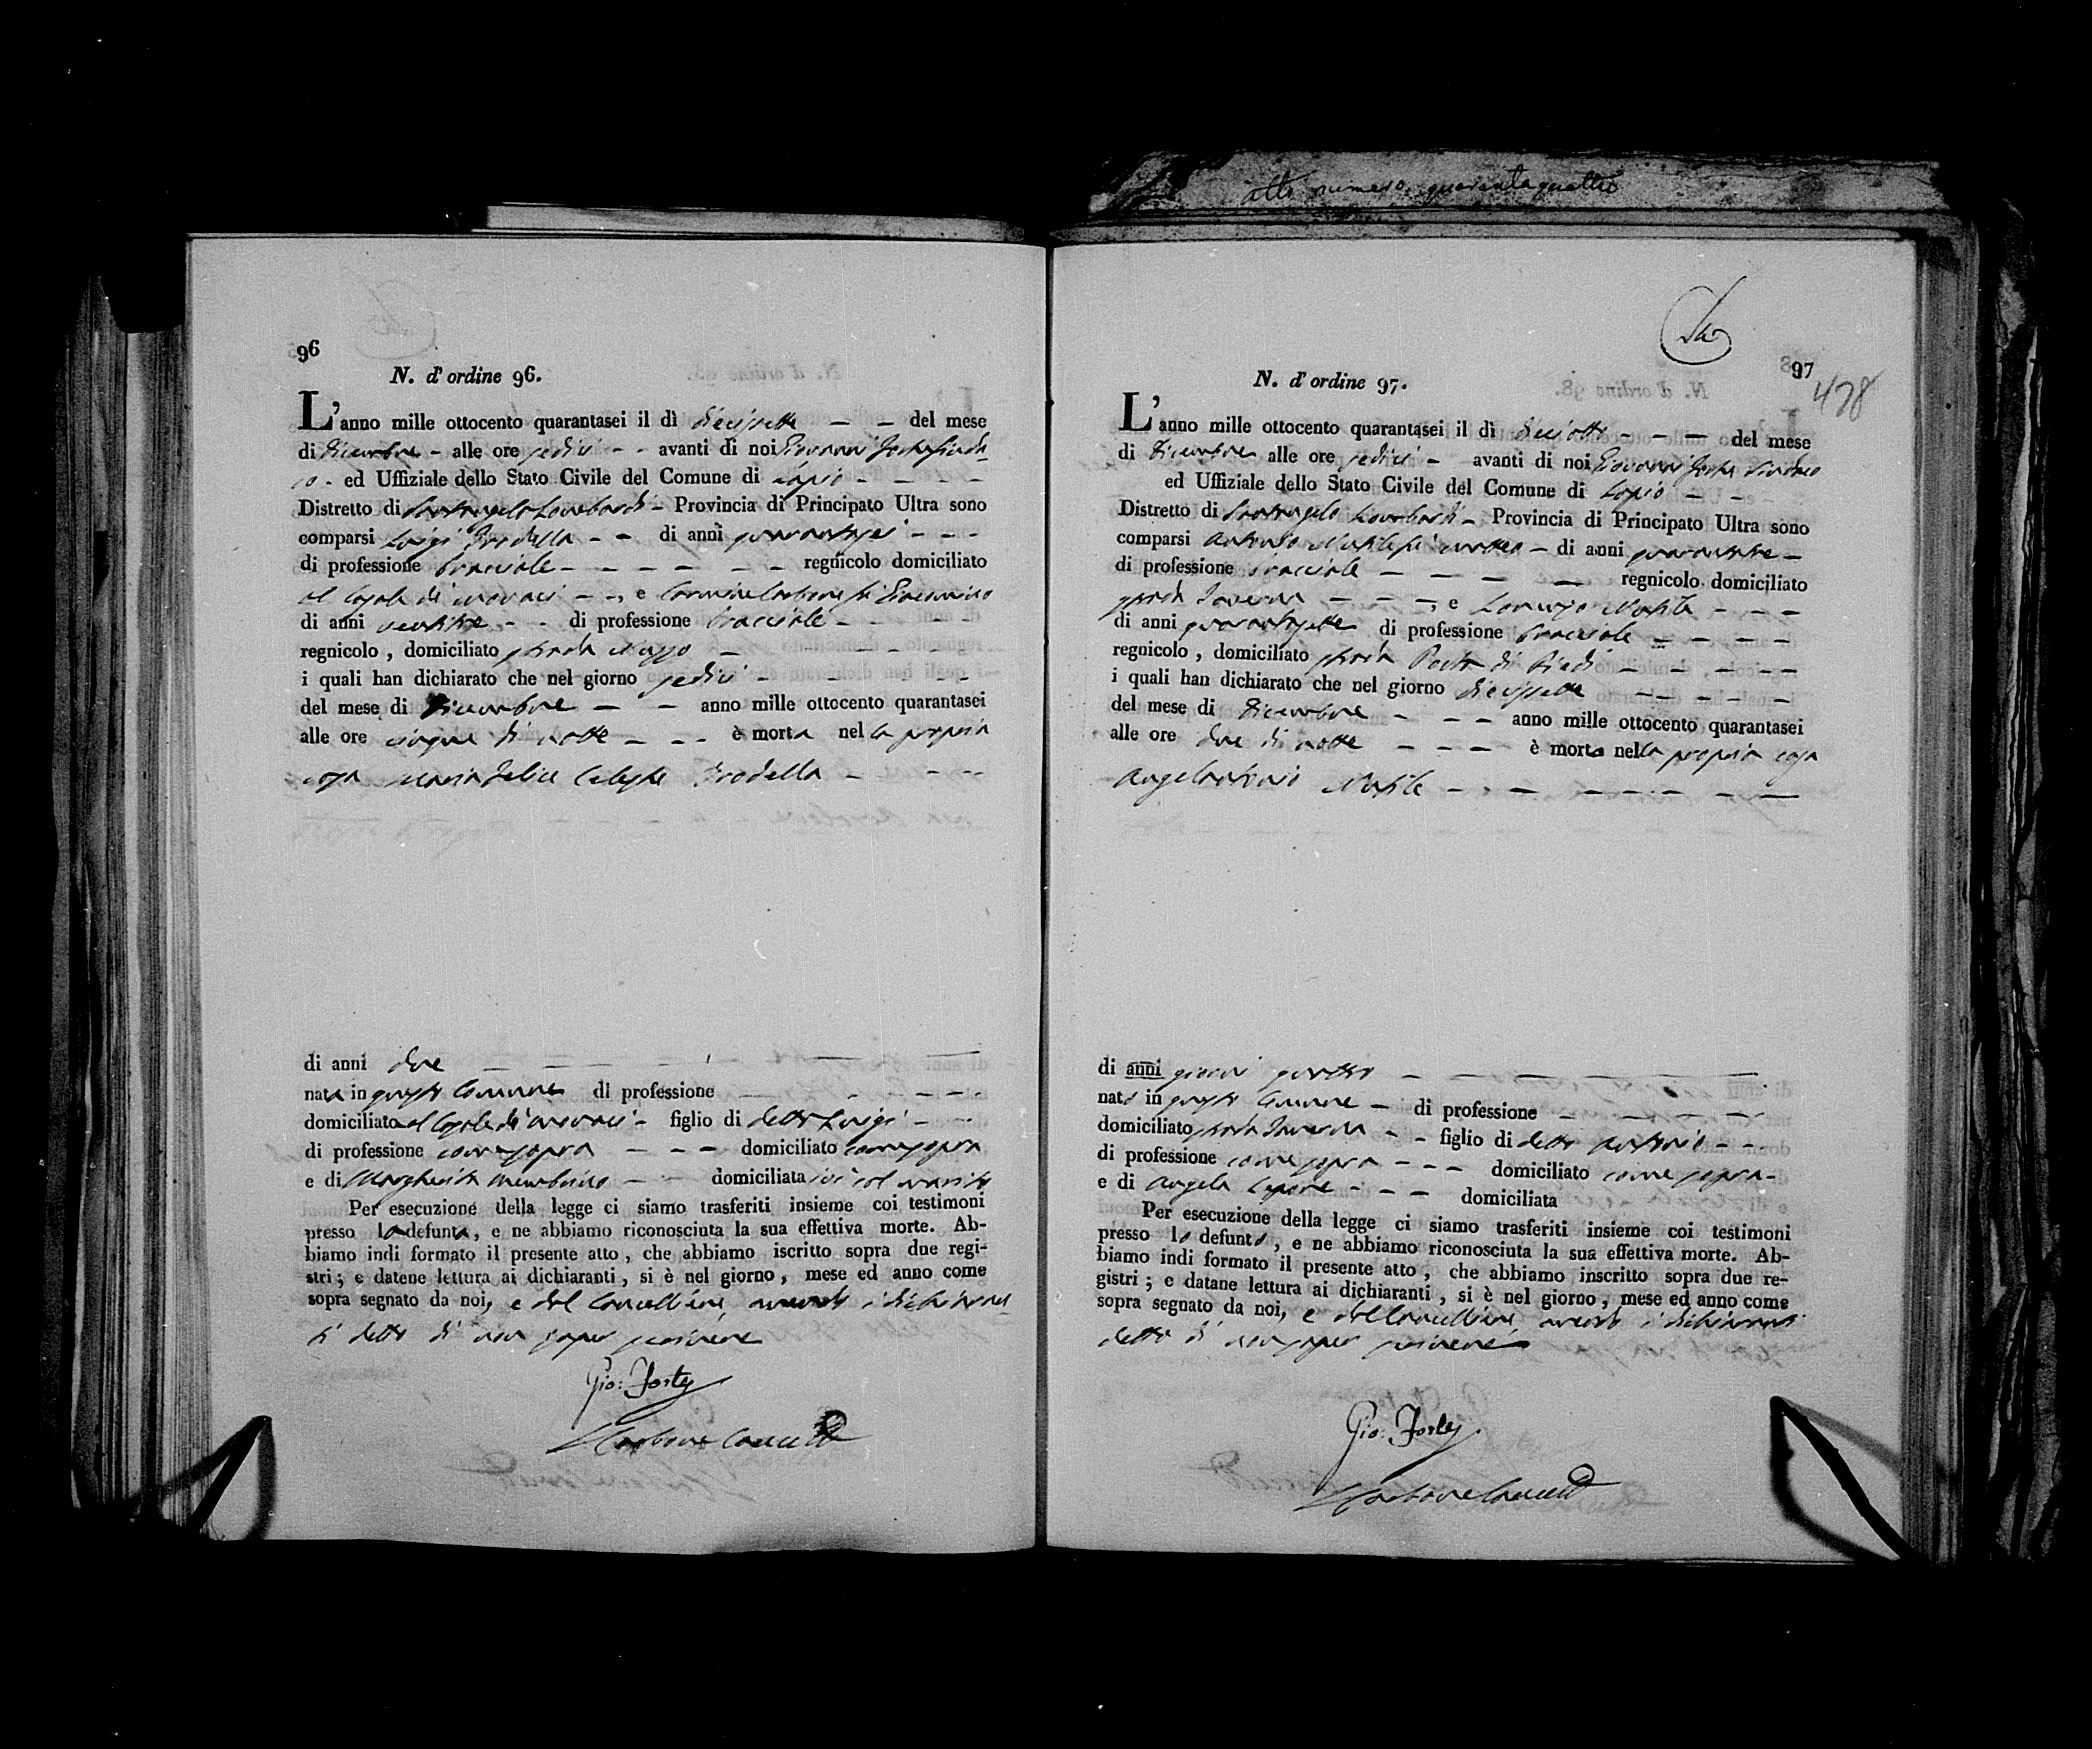 atto numero quarantaquattro
96
N. d'ordine 96.
L'anno mille ottocento quarantasei il dì diecissette — — del mese
di Dicembre - alle ore sedici - - avanti di noi Giovanni Forte Sinda-
co - ed Uffiziale dello Stato Civile del Comune di Lapio - - - -
Distretto di Santangelo Lombardi - Provincia di Principato Ultra sono
comparsi Luigi Trodella - - di anni quarantasei - - -
di professione bracciale - - - - - - regnicolo domiciliato
al Casale di - -, e Carmine Carbone fu
di anni ventitre - - di professione bracciale - - - -
regnicolo , domiciliato strada Mazzo - - - -
i quali han dichiarato che nel giorno sedici - - -
del mese di Dicembre - - anno mille ottocento quarantasei
alle ore cinque di notte - - - è morta nella propria
casa Maria Felice Celeste Trodella - - - -
di anni due - - - - - -
nata in questo Comune di professione - - - - -
domiciliato al Casale di - figlio di detto Luigi - -
di professione come sopra - - - domiciliato come sopra
e di Margherita - domiciliata ivi col marito
Per esecuzione della legge ci siamo trasferiti insieme coi testimoni
presso la defunta, e ne abbiamo riconosciuta la sua effettiva morte. Ab-
biamo indi formato il presente atto, che abbiamo iscritto sopra due regi-
stri; e datene lettura ai dichiaranti, si è nel giorno, mese ed anno come
sopra segnato da noi, e dal Cancelliere, avendo i dichiaran-
ti detto di non saper scrivere
Gio: Forte
Carbone Cancell.
97
478
N. d'ordine 97.
L'anno mille ottocento quarantasei il dì dieciotto - - - del mese
di Dicembre alle ore sedici - avanti di noi Giovanni Forte Sindaco
ed Uffiziale dello Stato Civile del Comune di Lapio - -
Distretto di Santangelo Lombardi - Provincia di Principato Ultra sono
comparsi Antonio - di anni quarantatre -
di professione bracciale - - - - regnicolo domiciliato
strada Taverna - - -, e Lorenzo - - -
di anni quarantasette di professione bracciale - - - -
regnicolo , domiciliato strada Porta di Piedi - - - - -
i quali han dichiarato che nel giorno diecissette - - - - -
del mese di Dicembre - - - - anno mille ottocento quarantasei
alle ore due di notte - - - è morto nella propria casa
Angelantonio - - - - - - -
di anni giorni quattro - - - - - -
nato in questo Comune - di professione - - - - -
domiciliato strada Taverna - - figlio di detto Antonio - -
di professione come sopra - - - domiciliato come sopra -
e di Angela - - - domiciliata
Per esecuzione della legge ci siamo trasferiti insieme coi testimoni
presso lo defunto, e ne abbiamo riconosciuta la sua effettiva morte. Ab-
biamo indi formato il presente atto , che abbiamo inscritto sopra due re-
gistri ; e datane lettura ai dichiaranti , si è nel giorno , mese ed anno come
sopra segnato da noi, e dal Cancelliere, avendo i dichiaranti
detto di non saper scrivere
Gio: Forte
Carbone Cancell.